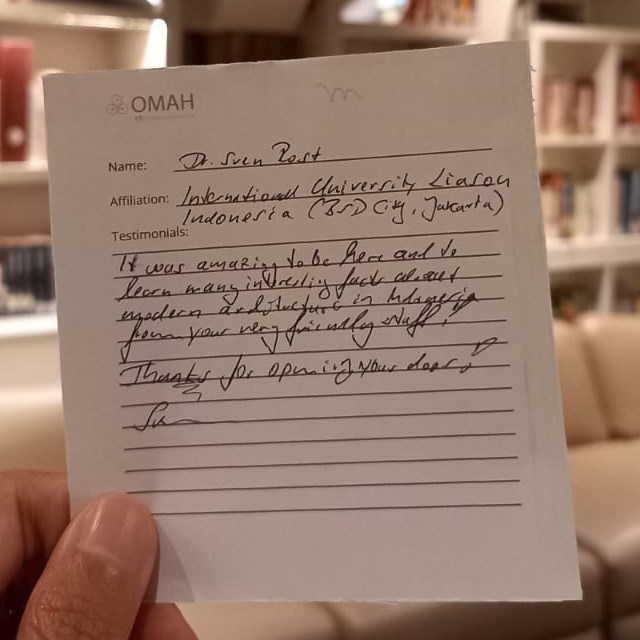 OMAH
Name: Dr. Sven Post
Affiliation: International University Liason
Indonesia (BSD City, Jakarta)
Testimonials:
It was amazing to be here and to
learn many interesting facts about
modern architecture in Indonesia
from your very friendly staff!
Thanks for opening your door!